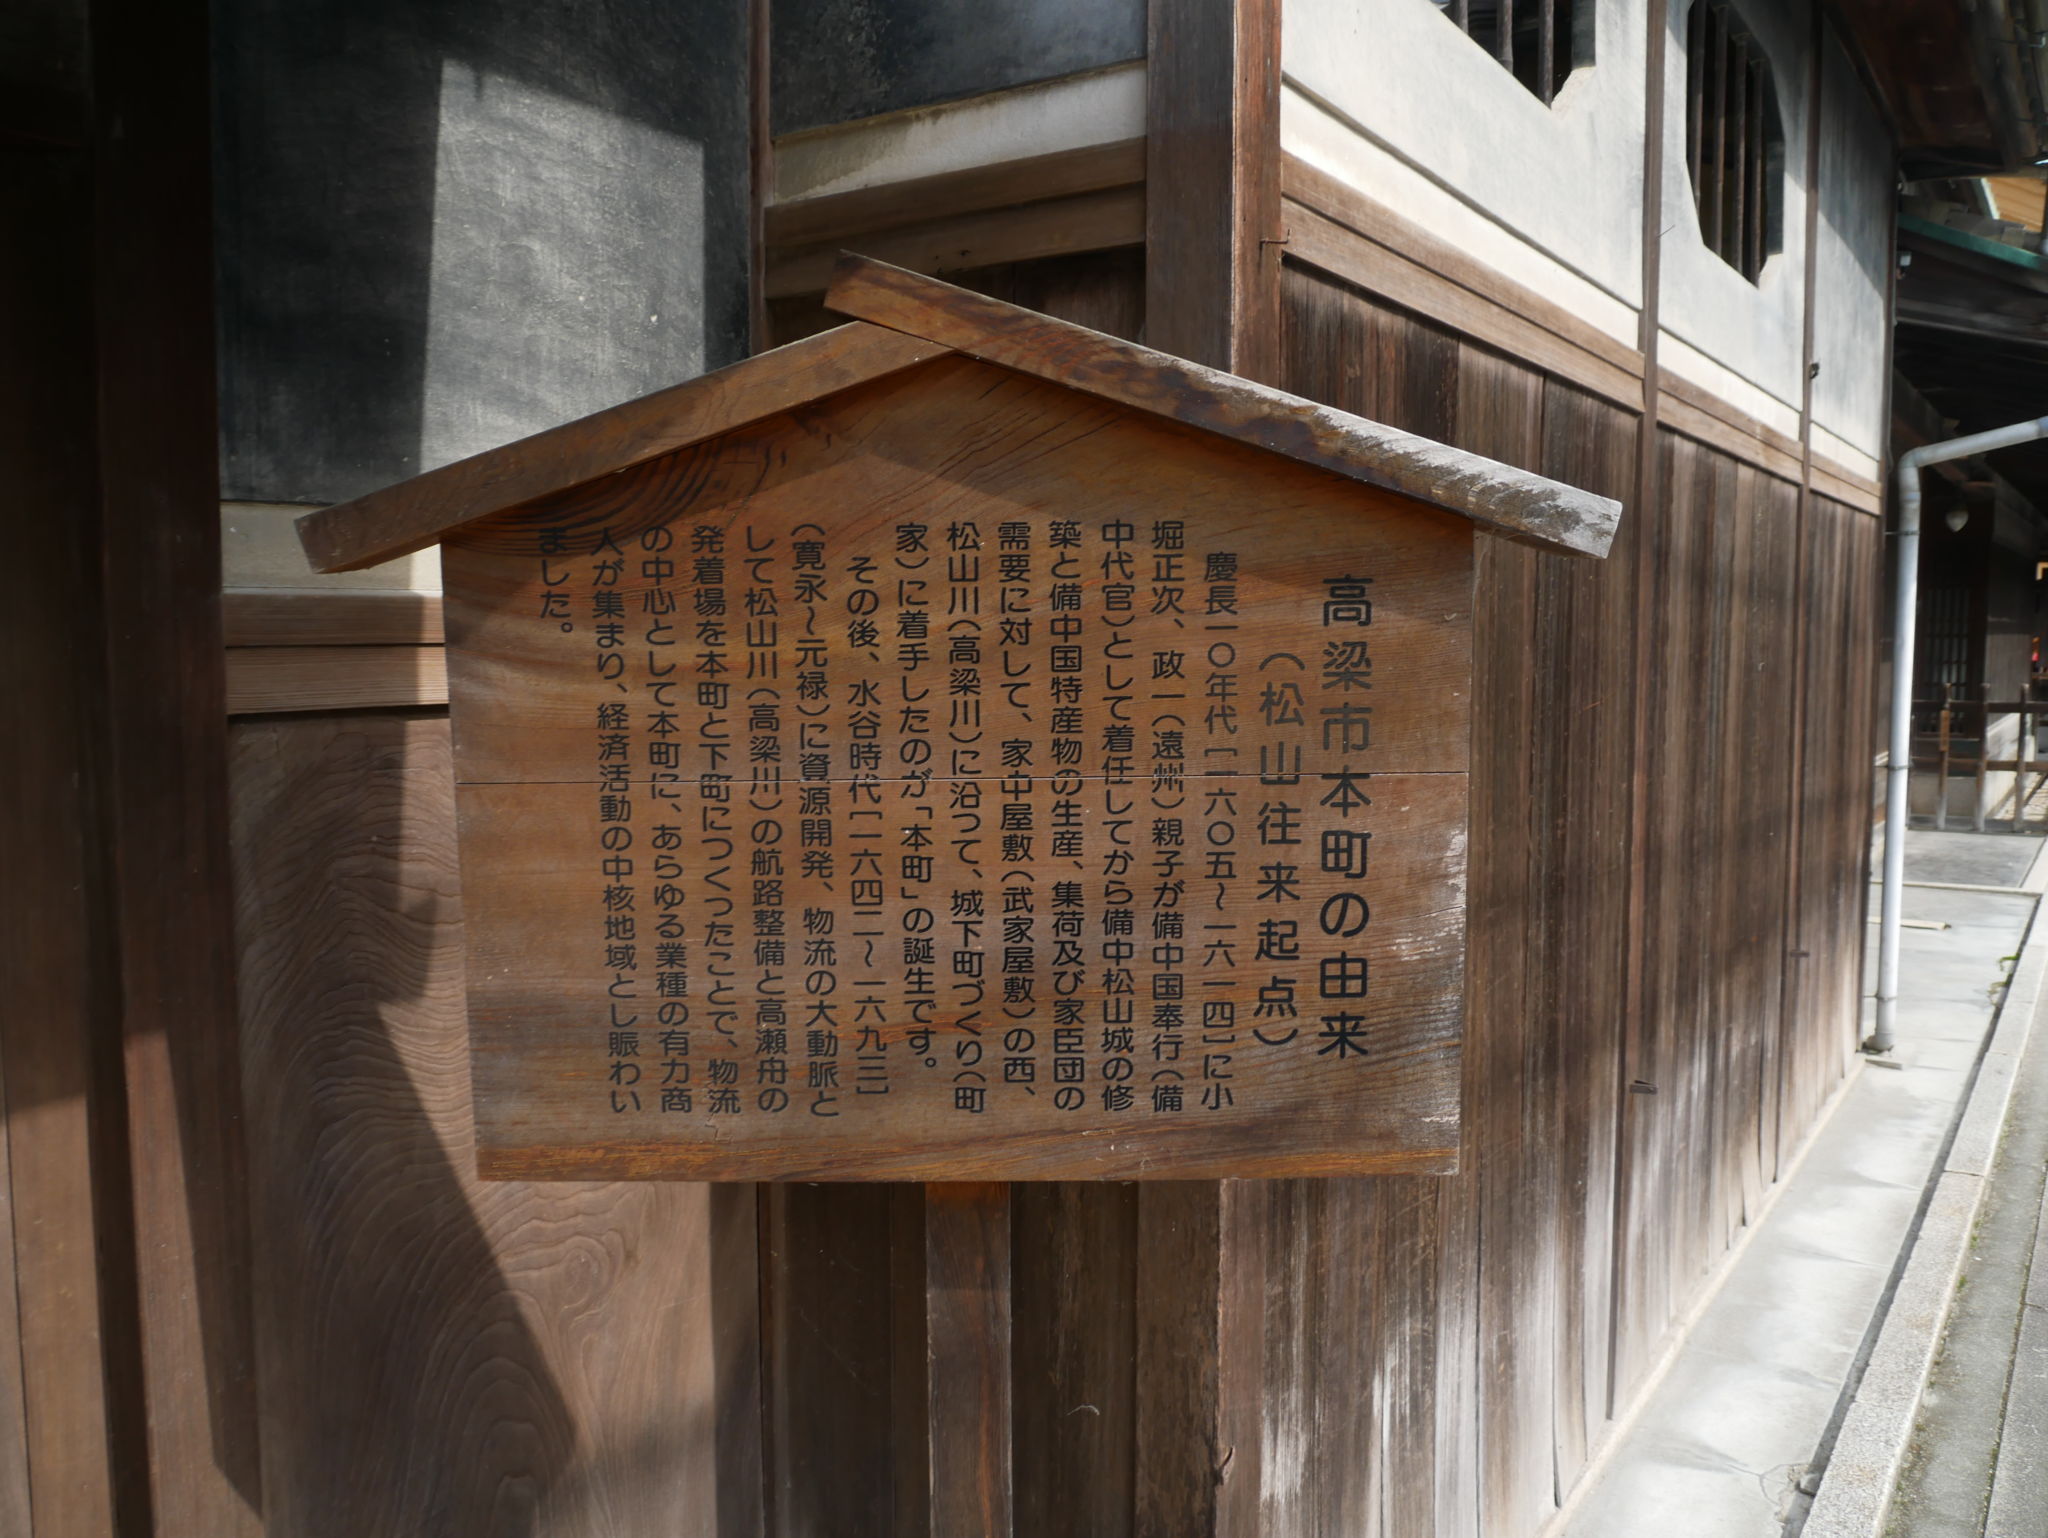 高梁市本町の由来
（松山往来起点）
慶長一〇年代［一六〇五～一六一四］に小
堀正次、政一（遠州）親子が備中国奉行（備
中代官）として着任してから備中松山城の修
築と備中国特産物の生産、集荷及び家臣団の
需要に対して、家中屋敷（武家屋敷）の西、
松山川（高梁川）に沿って、城下町づくり（町
家）に着手したのが「本町」の誕生です。
その後、水谷時代［一六四二～一六九三］
（寛永～元禄）に資源開発、物流の大動脈と
して松山川（高梁川）の航路整備と高瀬舟の
発着場を本町と下町につくったことで、物流
の中心として本町に、あらゆる業種の有力商
人が集まり、経済活動の中核地域とし賑わい
ました。